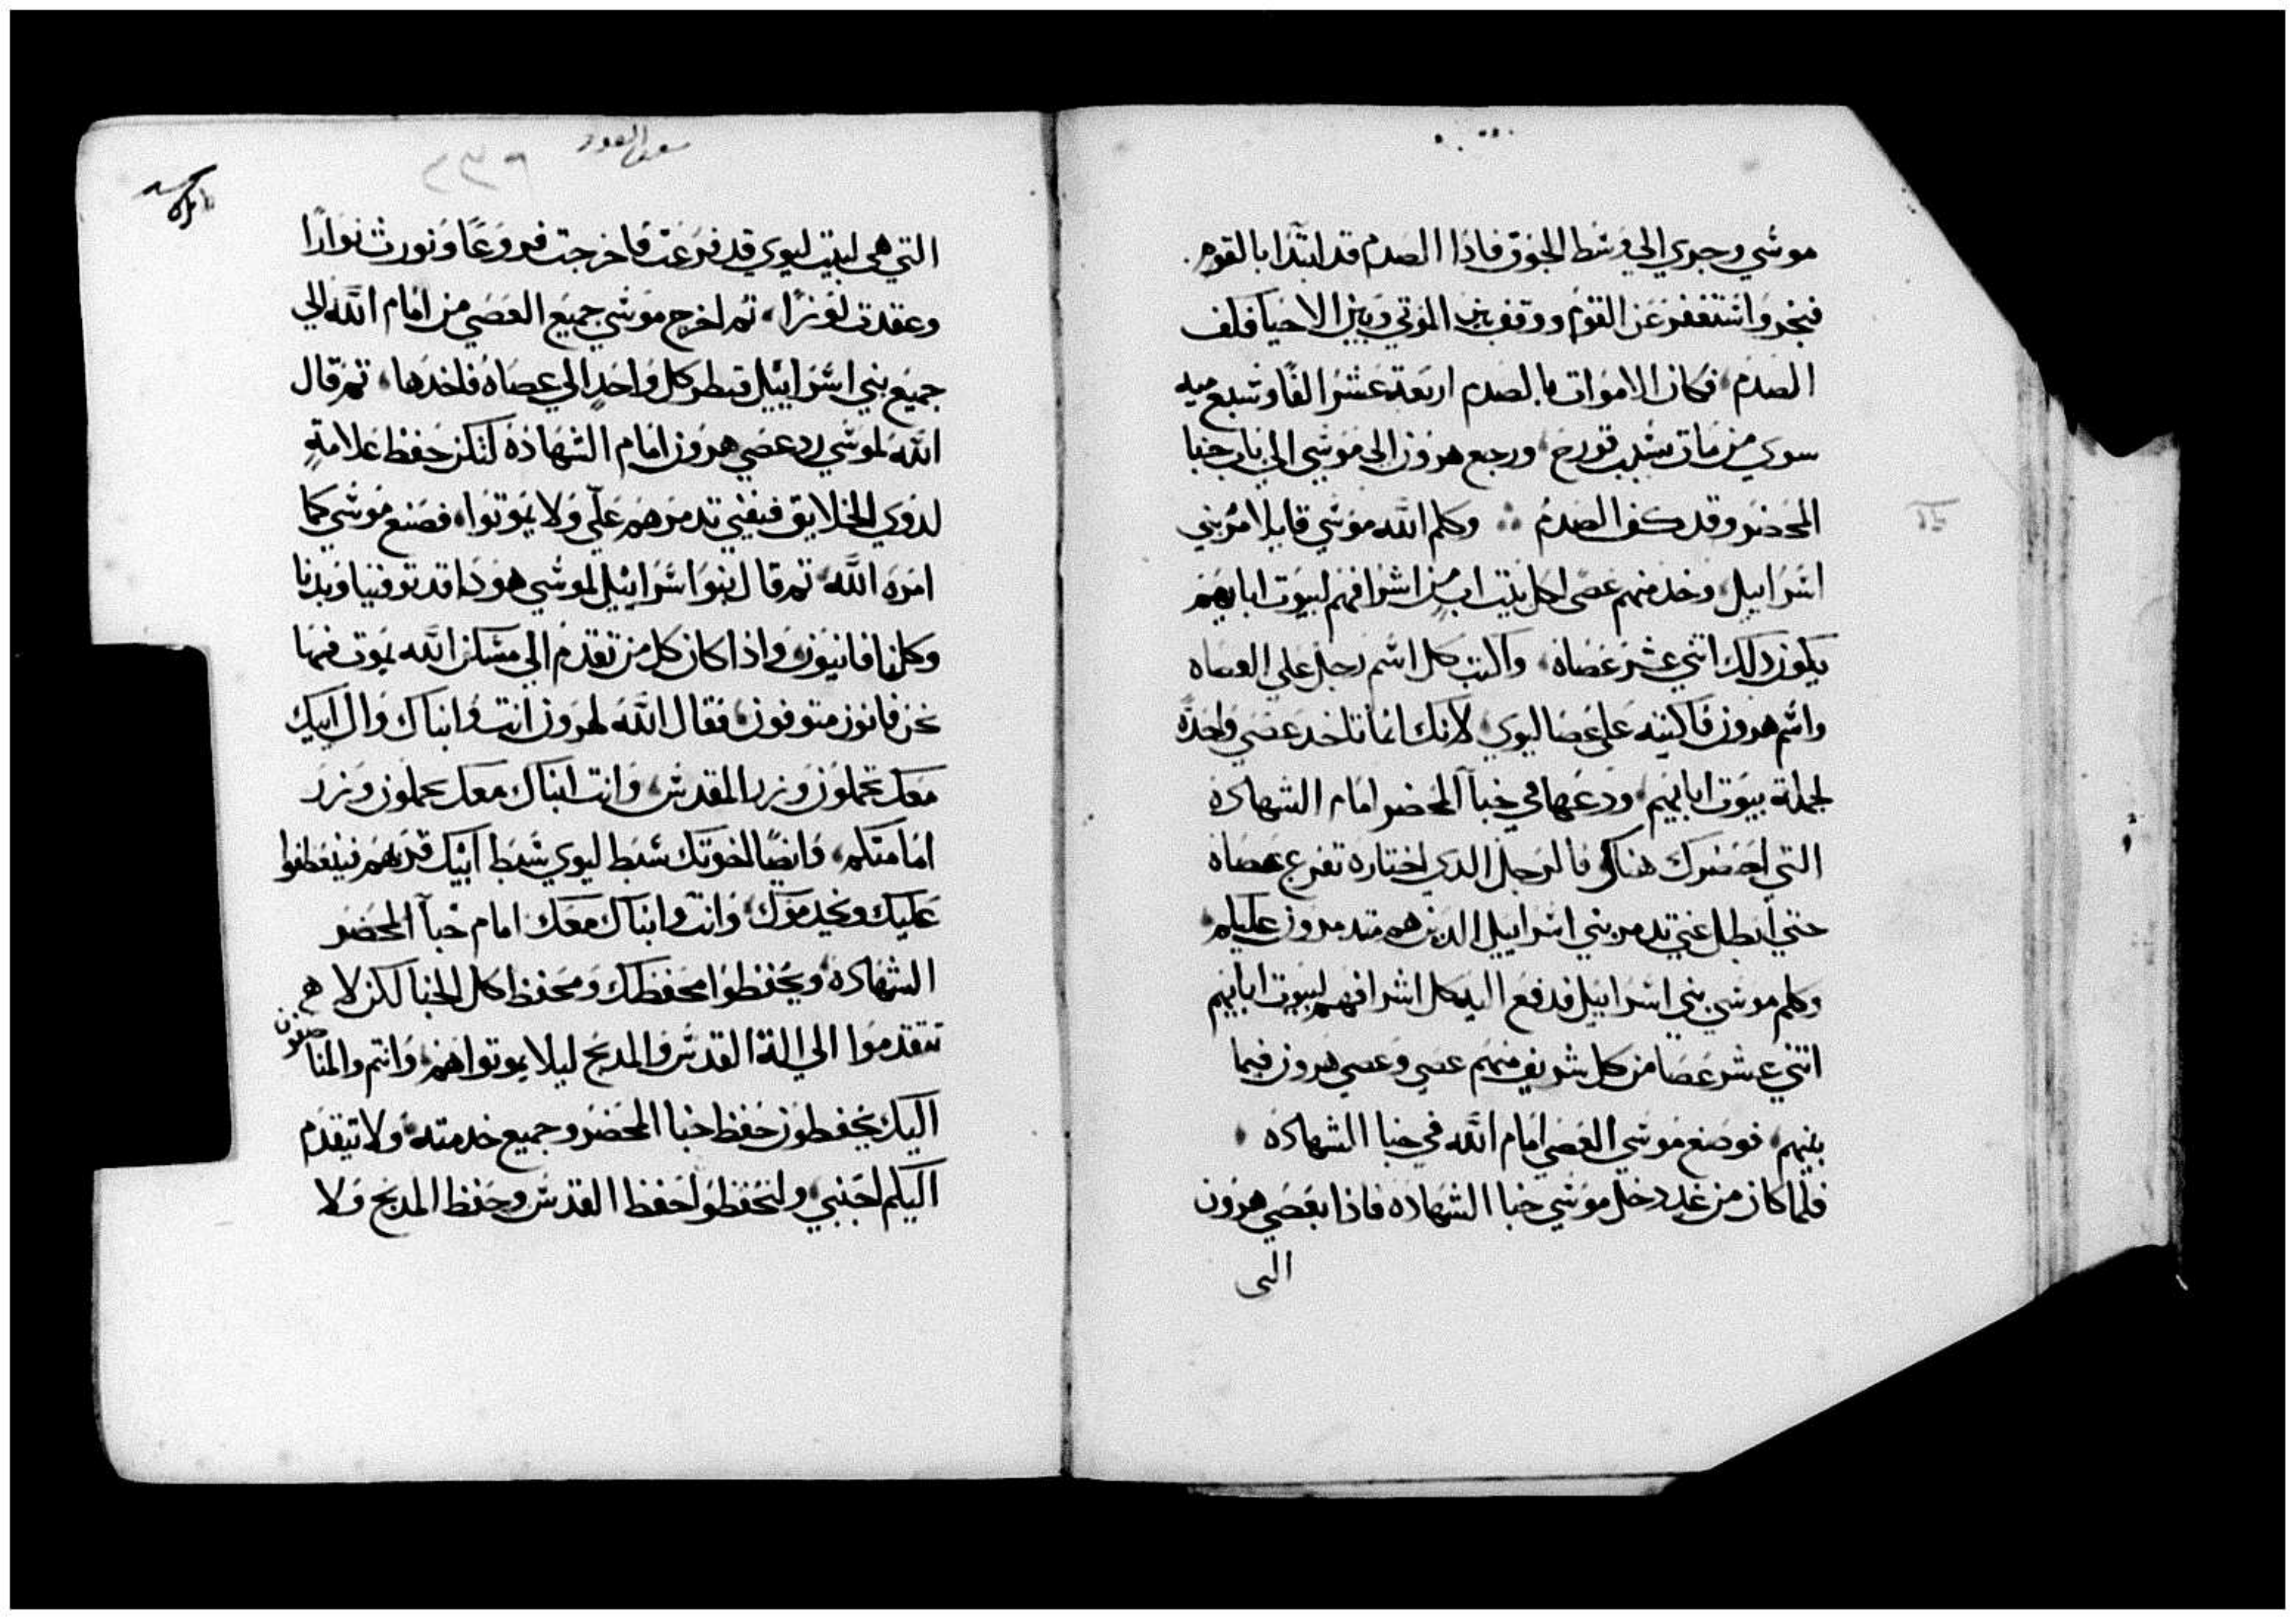 موسي وجري الي وسط الجوق فاذا الصدم قد ابتدا بالقوم
فبخر واستغفر عن القوم ووقف بين الموتي وبين الاحيا فكف
الصدم فكان الاموات بالصدم اربعة عشر الفا وسبع ميه
سوي من مات بسبب قورح ورجع هرون الي موسي الي باب خبا
المحضر وقد كف الصدم وكلم الله موسي قايلا امر بني
اسراييل وخد منهم عصي لكل بيت اب من اشرافهم لبيوت ابايهم
يكون دلك اثني عشر عصاه واكتب كل اسم رجل علي العصاه
واسم هرون فاكتبه علي عصا ليوي لانك انما تاخد عصي واحدة
لجملة بيوت ابايهم ودعها في خبا المحضر امام الشهاده
التي احضرك هناك فالرجل الدي اختاره تفرع عصاه
حتي ابطل عني تدمر بني اسراييل الدين هم متدمرون عليكم
وكلم موسي بني اسراييل فدفع اليه كل اشرافهم لبيوت ابايهم
اثني عشر عصا من كل شريف منهم عصي وعصي هرون فيما
بينهم فوضع موسي العصي امام الله في خبا الشهاده
فلما كان من غد دخل موسي خبا الشهاده فاذا بعصي هرون
التي
سفر العدد
٢٣٦
التي هي لبيت ليوي قد فرعت فاخرجت فروعا ونورت نوارا
وعقدت لوزا ثم اخرج موسي جميع العصي من امام الله الي
جميع بني اسراييل فنظر كل واحد الي عصاه فاخدها ثم قال
الله لموسي رد عصي هرون امام الشهادة لتكن حفظ علامة
لدوي الخلايق فيفني تدمرهم علي ولا يموتوا فصنع موسي كما
امره الله ثم قال بنوا اسراييل لموسي هودا قد توفينا وبدنا
وكلنا فانيون واذا كان كل من تقدم الي مسكن الله يموت فهما
نحن فانون متوفون فقال الله لهرون انت وابناك وال ابيك
معك تحملون وزر المقدس وانت ابناك معك تحملون وزر
امامتكم وايضا اخوتك سبط ليوي سبط ابيك قدمهم فينعطفوا
عليك ويخدموك وانت وابناك معك امام خبا المحضر
الشهاده ويحفظوا محفظك ومحفظ كل الخبا لكن لا
يتقدموا الي الة القدس والمدبح ليلا يموتوا هم وانتم والمنا
اليك يحفظون حفظ خبا المحضر وجميع خدمته ولا يتقدم
اليكم اجنبي ولتحفظوا حفظ القدس وحفظ المدبح ولا